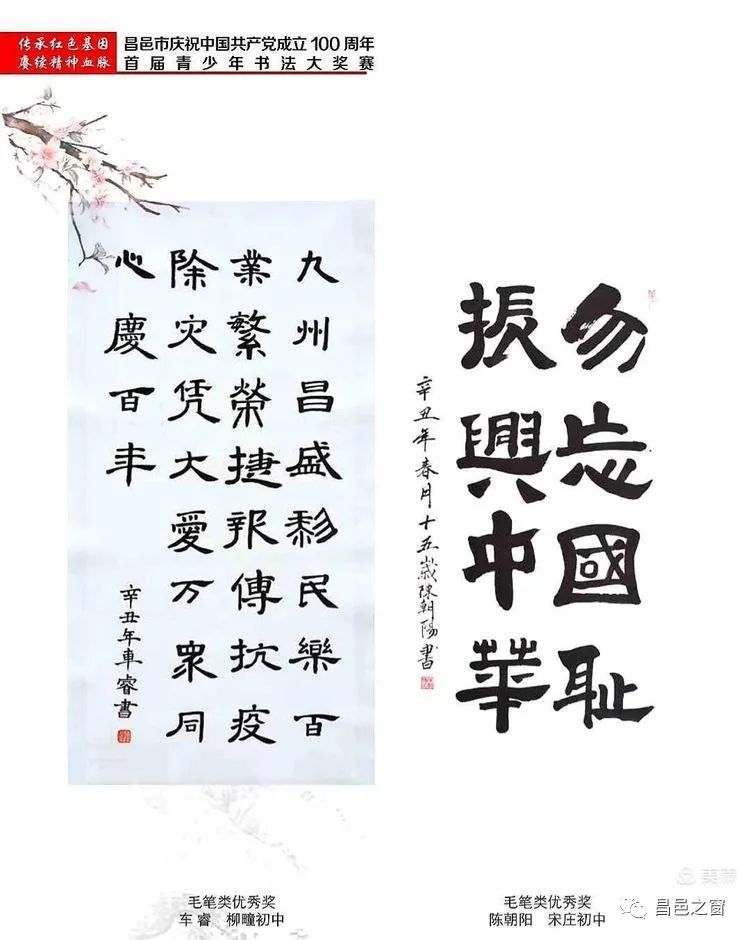 传承红色基因
赓续精神血脉
昌邑市庆祝中国共产党成立100周年
首届青少年书法大奖赛
九州昌盛黎民樂百
業繁榮捷報傳抗疫
除灾凭大愛万衆同
心慶百年
辛丑年車睿書
勿忘國耻
振興中華
辛丑年春月十五歲陳朝陽書
毛笔类优秀奖
车睿 柳疃初中
毛笔类优秀奖
陈朝阳 宋庄初中
美篇
昌邑之窗